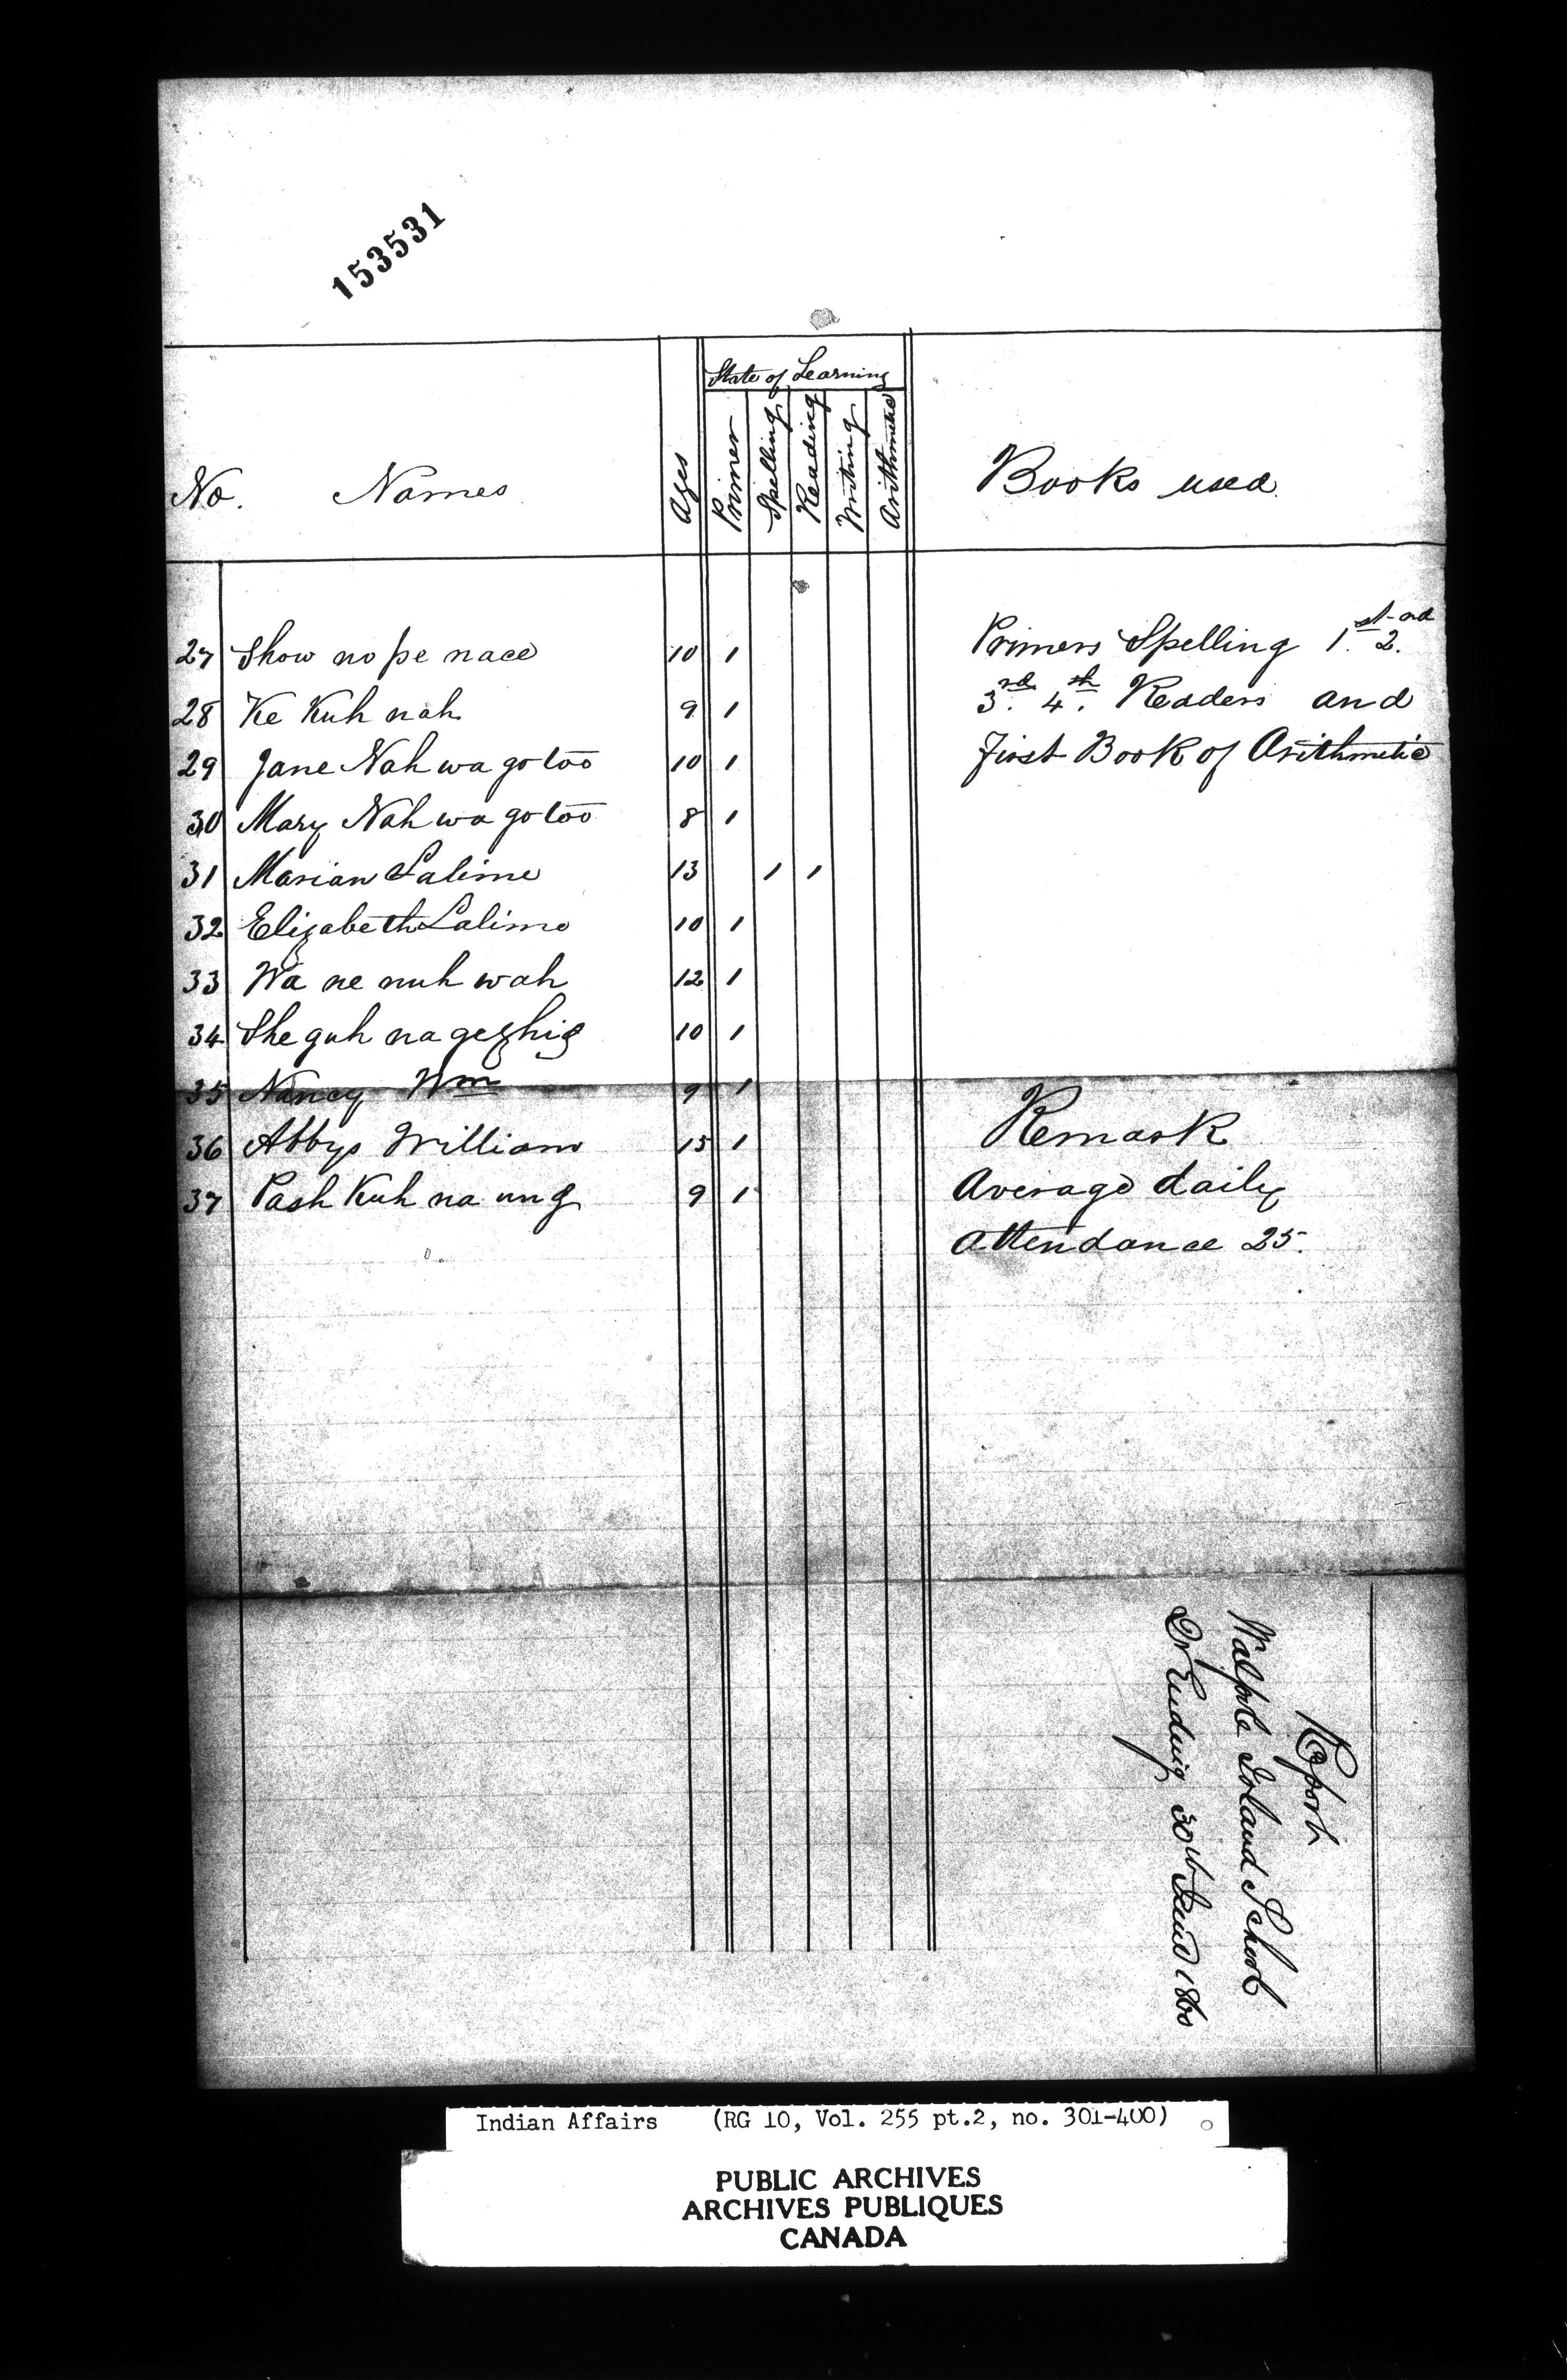 153531
State of Learning
No. Names Ages Primer Spelling Reading Writing Arithmetic Books used
27 Show no pe nace 10 1
28 Ke Kuh nah 9 1
29 Jane Nah wa go too 10 1
30 Mary Nah wa go too 8 1
31 Marian Lalime 13 1 1
32 Elizabeth Lalime 10 1
33 Wa ne nuh wah 12 1
34 She guh na gezhig 10 1
35 Nancy Wm 9 1
36 Abbys William 15 1
37 Pash Kuh na ung 9 1
Primers Spelling 1st. 2nd.
3rd. 4th. Readers and
First Book of Arithmetic
Remark
Average daily
attendance 25.
Report
Walpole Island School
Qr Ending 30th June 1860
Indian Affairs (RG 10, Vol. 255 pt.2, no. 301-400)
PUBLIC ARCHIVES
ARCHIVES PUBLIQUES
CANADA